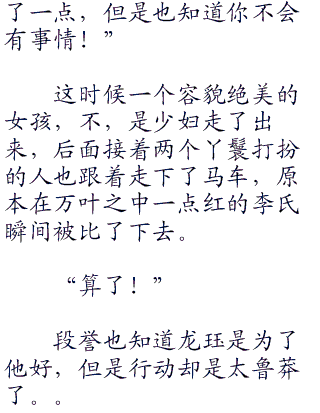 了一点，但是也知道你不会
有事情！”
这时候一个容貌绝美的
女孩，不，是少妇走了出
来，后面接着两个丫鬟打扮
的人也跟着走下了马车，原
本在万叶之中一点红的李氏
瞬间被比了下去。
“算了！”
段誉也知道龙珏是为了
他好，但是行动却是太鲁莽
了。。